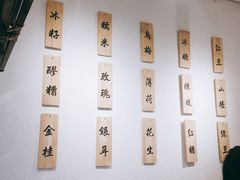 冰籽
糯米
乌梅
冰糖
红豆
醪糟
玫瑰
薄荷
陈皮
山楂
金桂
银耳
花生
红糖
绿豆